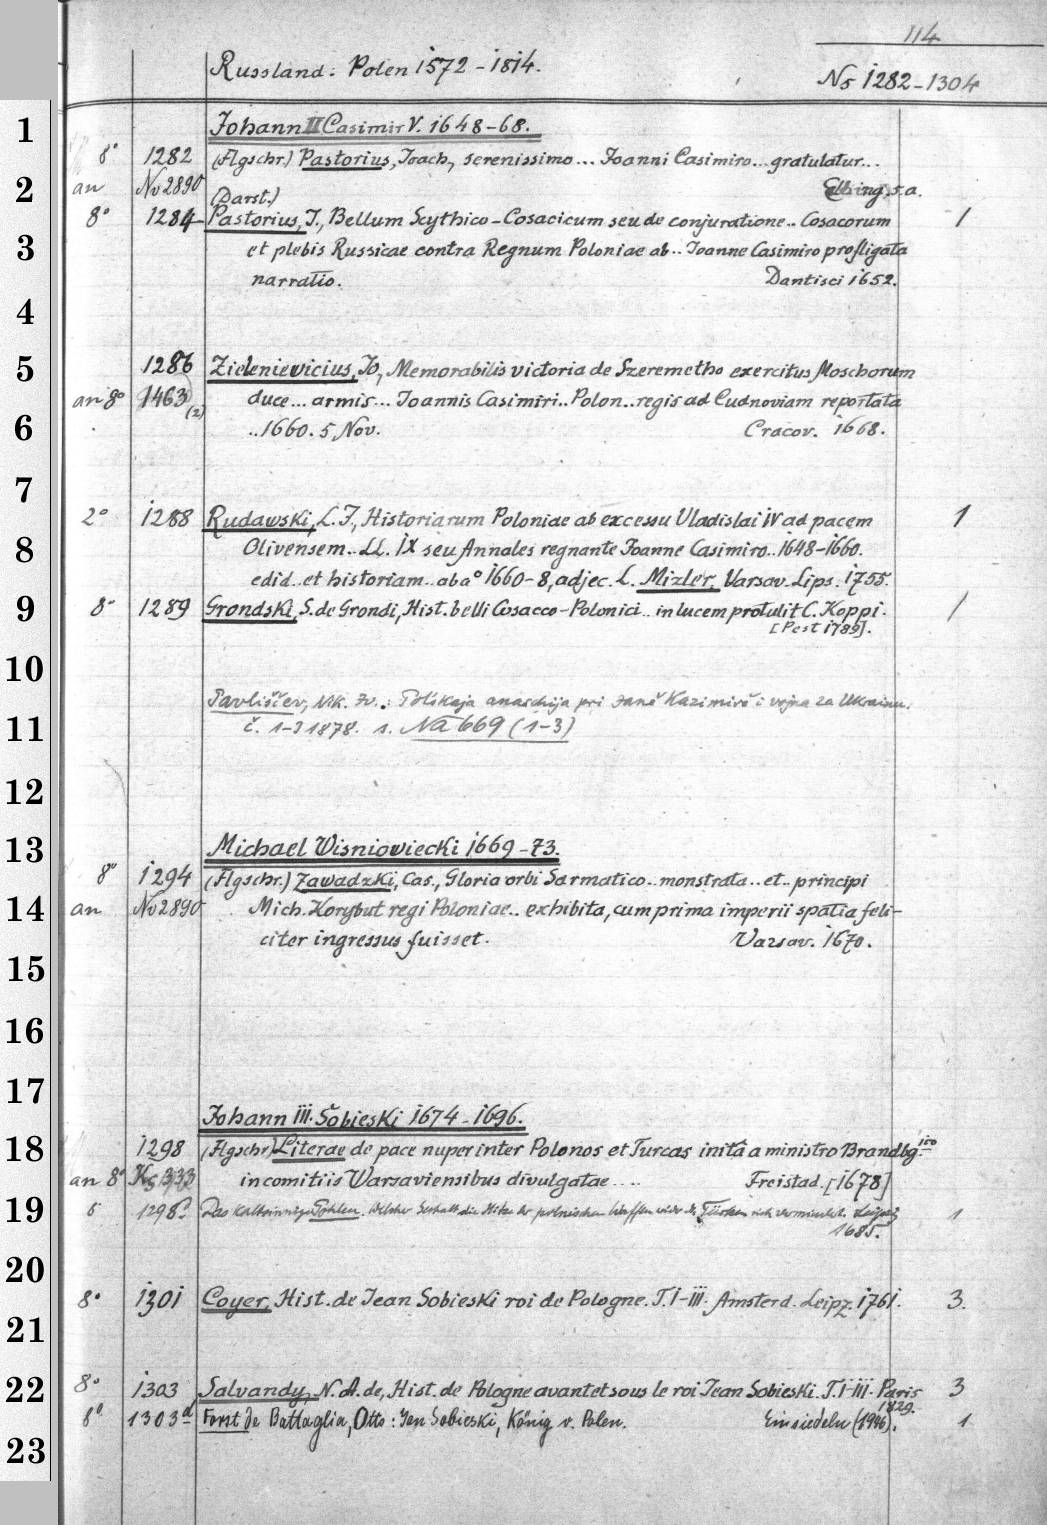 114
Russland: Polen 1572-1814.
No 1282-1304
1
Johann II Casimir V. 1648-68.
8° 1282 (Flgschr.) Pastorius, Joach, serenissimo... Joanni Casimiro... gratulatur...
2 an No 2890 Elbing, s.a.
(Darst.)
8° 1284 Pastorius, J., Bellum Scythico-Cosacicum seu de conjuratione.. Cosacorum 1
3 et plebis Russicae contra Regnum Poloniae ab.. Joanne Casimiro profligata
narratio. Dantisci 1652.
4
5 1286 Zieleniewicius, Jo, Memorabilis victoria de Szeremetho exercitus Moschorum
an 8° 1463 (2) duce... armis... Joannis Casimiri.. Polon.. regis ad Cudnoviam reportata
6 ..1660. 5, Nov. Cracov. 1668.
7
2° 1288 Rudawski, L. J., Historiarum Poloniae ab excessu Vladislai IV ad pacem 1
8 Olivensem.. LL. IX seu Annales regnante Joanne Casimiro.. 1648-1660.
edid. et historiam.. ab a° 1660-8, adjec. L. Mizler, Varsav. Lips. 1755.
9 8° 1289 Grondski, S. de Grondi, Hist. belli Cosacco-Polonici.. in lucem protulit C. Koppi. 1
[Pest 1789].
10
Pavliščev, Nik. Iv.: Pol'skaja anarchija pri Janě Kazimirě i vojna za Ukrainu.
11 č. 1-3 1878. 1. Na 669 (1-3)
12
13 Michael Wisniowiecki 1669-73.
8° 1294 (Flgschr.) Zawadzki, Cas., Gloria orbi Sarmatico.. monstrata.. et.. principi
14 an No 2890 Mich. Korybut regi Poloniae.. exhibita, cum prima imperii spatia feli-
citer ingressus fuisset. Varsav. 1670.
15
16
17
Johann III. Sobieski 1674-1696.
18 1298 (Flgschr.) Literae de pace nuper inter Polonos et Turcas inita a ministro Brandbg.ico
an 8° Ks 333 in comitiis Warsaviensibus divulgatae.... Freistad. [1678]
19 Pohlen, Welcher Gestalt die Hitze der polnischen Waffen wider die Türken sich vermindert. Leipzig 1
1685.
20
8° 1301 Coyer, Hist. de Jean Sobieski roi de Pologne. T. I-III. Amsterd. Leipz. 1761. 3.
21
22 8° 1303 Salvandy, N. A. de, Hist. de Pologne avant et sous le roi Jean Sobieski. T. I-III. Paris 3
1829.
8° 1303a Forst de Battaglia, Otto: Jan Sobieski, König v. Polen. Einsiedeln (1946). 1
23